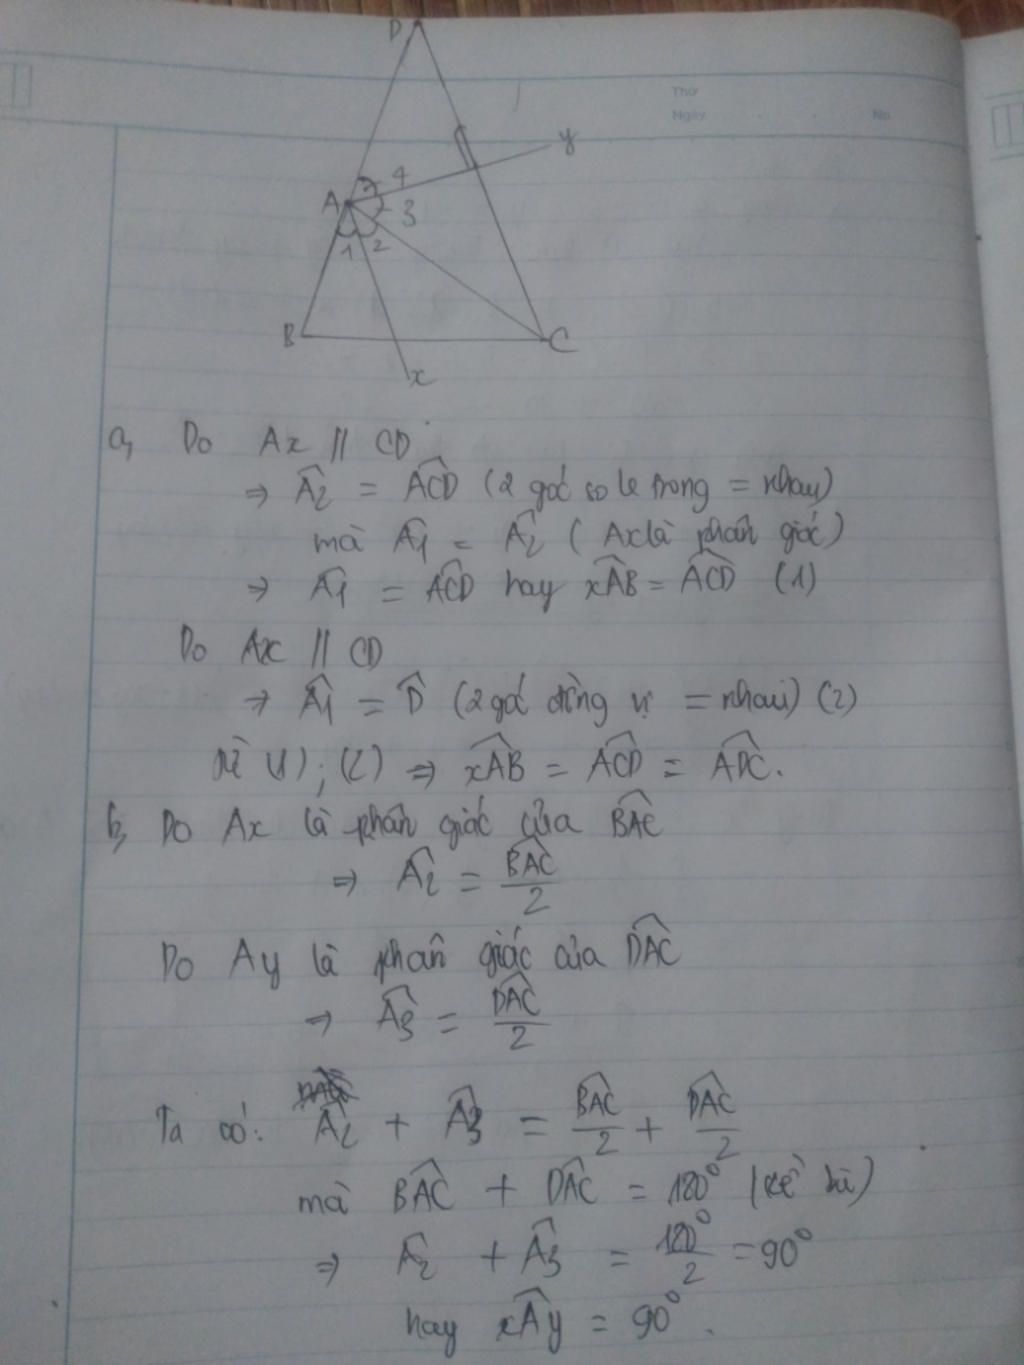 D
Thứ
Ngày
No.
y
A
4
3
1
2
B
C
x
a, Do Ax // CD
⇒ Â2 = ACD̂ (2 góc so le trong = nhau)
mà Â1 = Â2 (Ax là phân giác)
⇒ Â1 = ACD̂ hay xAB̂ = ACD̂ (1)
Do Ax // CD
⇒ Â1 = D̂ (2 góc đồng vị = nhau) (2)
từ (1); (2) ⇒ xAB̂ = ACD̂ = ADĈ.
b, Do Ax là phân giác của BAĈ
⇒ Â2 = BAĈ/2
Do Ay là phân giác của DAĈ
⇒ Â3 = DAĈ/2
Ta có: Â2 + Â3 = BAĈ/2 + DAĈ/2
mà BAĈ + DAĈ = 180° (kề bù)
⇒ Â2 + Â3 = 180°/2 = 90°
hay xAŷ = 90°.